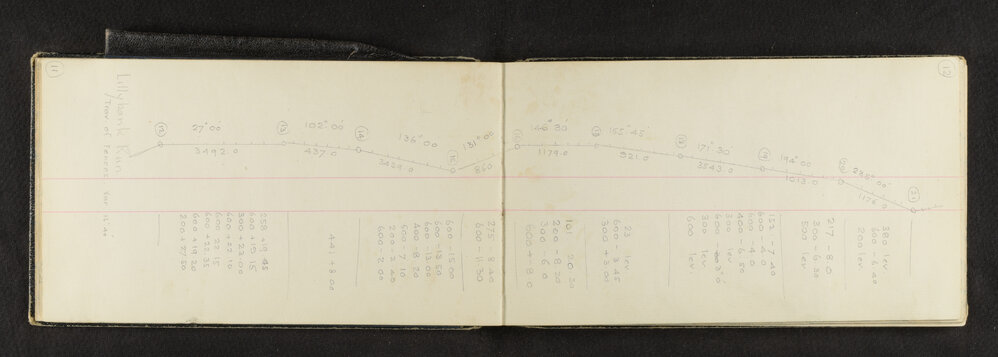 11
Lillybank Run
Trav of Fences Var 15 40
12
27° 00'
3492.0
13
102° 00'
437.0
14
136° 00'
3429.0
15
131° 00'
850
258 + 19 45
600 + 19 15
300 + 23.00
600 + 22 10
600 22 15
600 + 22.35
600 + 19 20
200 + 27.50
441 + 8 00
600 - 15 00
600 - 13 50
600 - 13 00
400 - 8 20
500 - 7 10
200 - 2 40
600 - 2 00
275 - 8 40
600 - 11 30
12
16
146° 30'
1179.0
17
155° 45'
921.0
18
171° 30'
3543.0
19
194° 00'
1013.0
20
235° 00'
1176.0
21
101 20 30
200 - 8 30
300 - 6 0
600 + 8 0
23 lev.
600 - 3 45
300 + 3 00
152 - 7 40
600 - 4 0
600 - 4 0
400 - 6 50
300 lev
600 - 3 0
300 lev.
600 lev.
217 - 8 0
300 - 6 30
500 lev
380 lev
300 - 6 40
200 lev